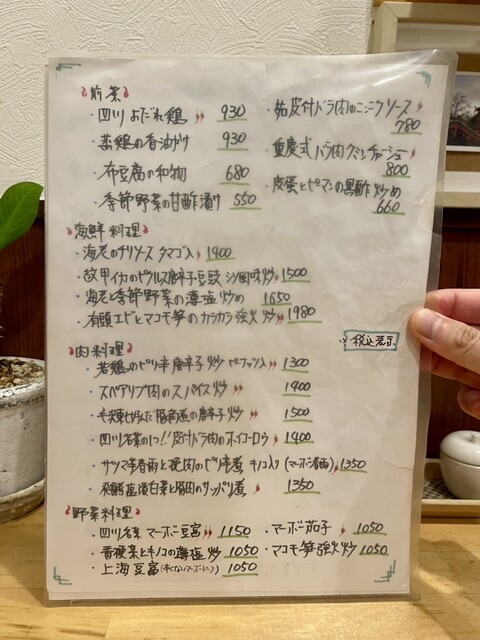 前菜
・四川よだれ鶏 930
・蒸鶏の香油がけ 930
・布豆腐の和物 680
・季節野菜の甘酢漬け 550
皮付バラ肉のニンニクソース
780
・重慶式バラ肉
800
・皮蛋とピーマンの黒酢炒め
660
海鮮料理
・海老のチリソース タマゴ入 1400
・紋甲イカのピクルス唐辛子豆豉 炒 1500
・海老と季節野菜の薄塩炒め 1650
・有頭エビとマコモ筍のカラカラ強火炒 1980
※税込表示
肉料理
・若鶏のピリ辛唐辛子炒 1300
・スペアリブ肉のスパイス炒 1400
豚角煮の唐辛子炒 1500
・四川名菜の1つ!!皮付バラ肉のホイコーロウ 1400
・サツマ芋春雨と挽肉のピリ辛煮 キノコ入り(マーボー春雨) 1350
・飛騨 漬白菜と豚肉のサッパリ煮 1350
野菜料理
・四川名菜 マーボー豆腐 1150
・マーボー茄子 1050
・青梗菜とキノコの薄塩炒 1050
・マコモ筍強火炒 1050
・上海豆腐(辛くないマーボードーフ) 1050